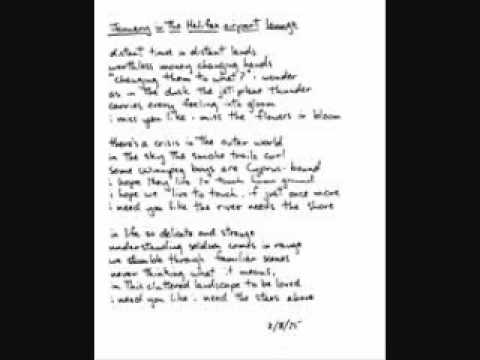 January in the Halifax airport lounge
distant time in distant lands
worthless money changing hands
"changing them to what?" i wonder
as in the dusk the jet-plane thunder
carries every feeling into gloom
i miss you like i miss the flowers in bloom
there's a crisis in the outer world
in the sky the smoke trails curl
some winnipeg boys are Cyprus-bound
i hope they live to touch home ground
i hope we live to touch, if just once more
i need you like the river needs the shore
in life so delicate and strange
understanding seldom comes in range
we stumble through familiar scenes
never thinking what it means,
in this cluttered landscape to be loved
i need you like i need the stars above